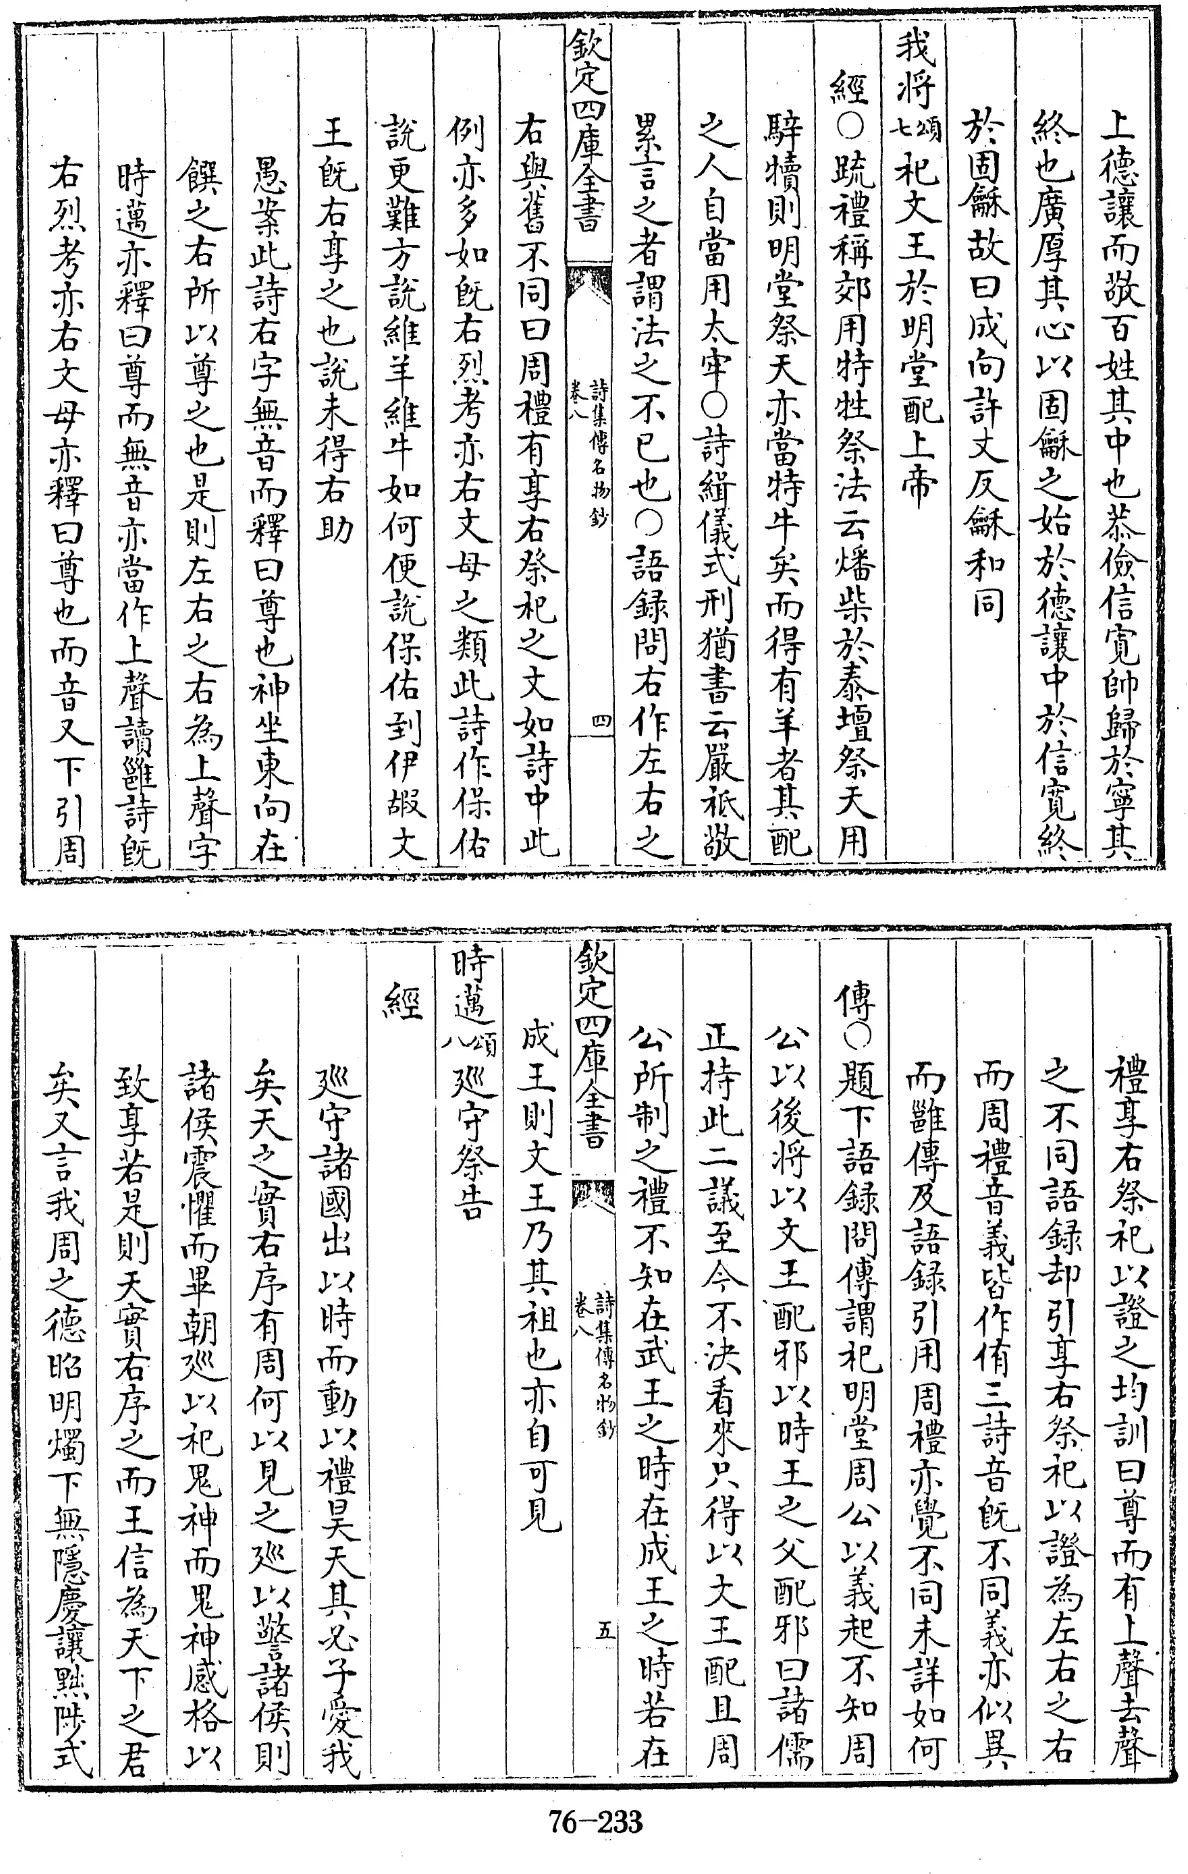 上德讓而敬百姓其中也恭儉信寬帥歸於寧其
終也廣厚其心以固龢之始於德讓中於信寬終
於固龢故曰成向許丈反龢和同
我將頌七祀文王於明堂配上帝
經○疏禮稱郊用特牲祭法云燔柴於泰壇祭天用
騂犢則明堂祭天亦當特牛矣而得有羊者其配
之人自當用太牢○詩緝儀式刑猶書云嚴祗敬
累言之者謂法之不已也○語録問右作左右之
欽定四庫全書
詩集傳名物鈔
卷八
四
右與舊不同曰周禮有享右祭祀之文如詩中此
例亦多如既右烈考亦右文母之類此詩作保佑
說更難方說維羊維牛如何便說保佑到伊嘏文
王既右享之也說未得右助
愚案此詩右字無音而釋曰尊也神坐東向在
饌之右所以尊之也是則左右之右為上聲字
時邁亦釋曰尊而無音亦當作上聲讀雝詩既
右烈考亦右文母亦釋曰尊也而音又下引周
禮享右祭祀以證之均訓曰尊而有上聲去聲
之不同語録却引享右祭祀以證為左右之右
而周禮音義皆作侑三詩音既不同義亦似異
而雝傳及語録引用周禮亦覺不同未詳如何
傳○題下語録問傳謂祀明堂周公以義起不知周
公以後將以文王配邪以時王之父配邪曰諸儒
正持此二議至今不決看來只得以文王配且周
公所制之禮不知在武王之時在成王之時若在
欽定四庫全書
詩集傳名物鈔
卷八
五
成王則文王乃其祖也亦自可見
時邁頌八巡守祭告
經
巡守諸國出以時而動以禮昊天其必子愛我
矣天之實右序有周何以見之巡以警諸侯則
諸侯震懼而畢朝巡以祀鬼神而鬼神感格以
致享若是則天實右序之而王信為天下之君
矣又言我周之德昭明燭下無隱慶讓黜陟式
76-233